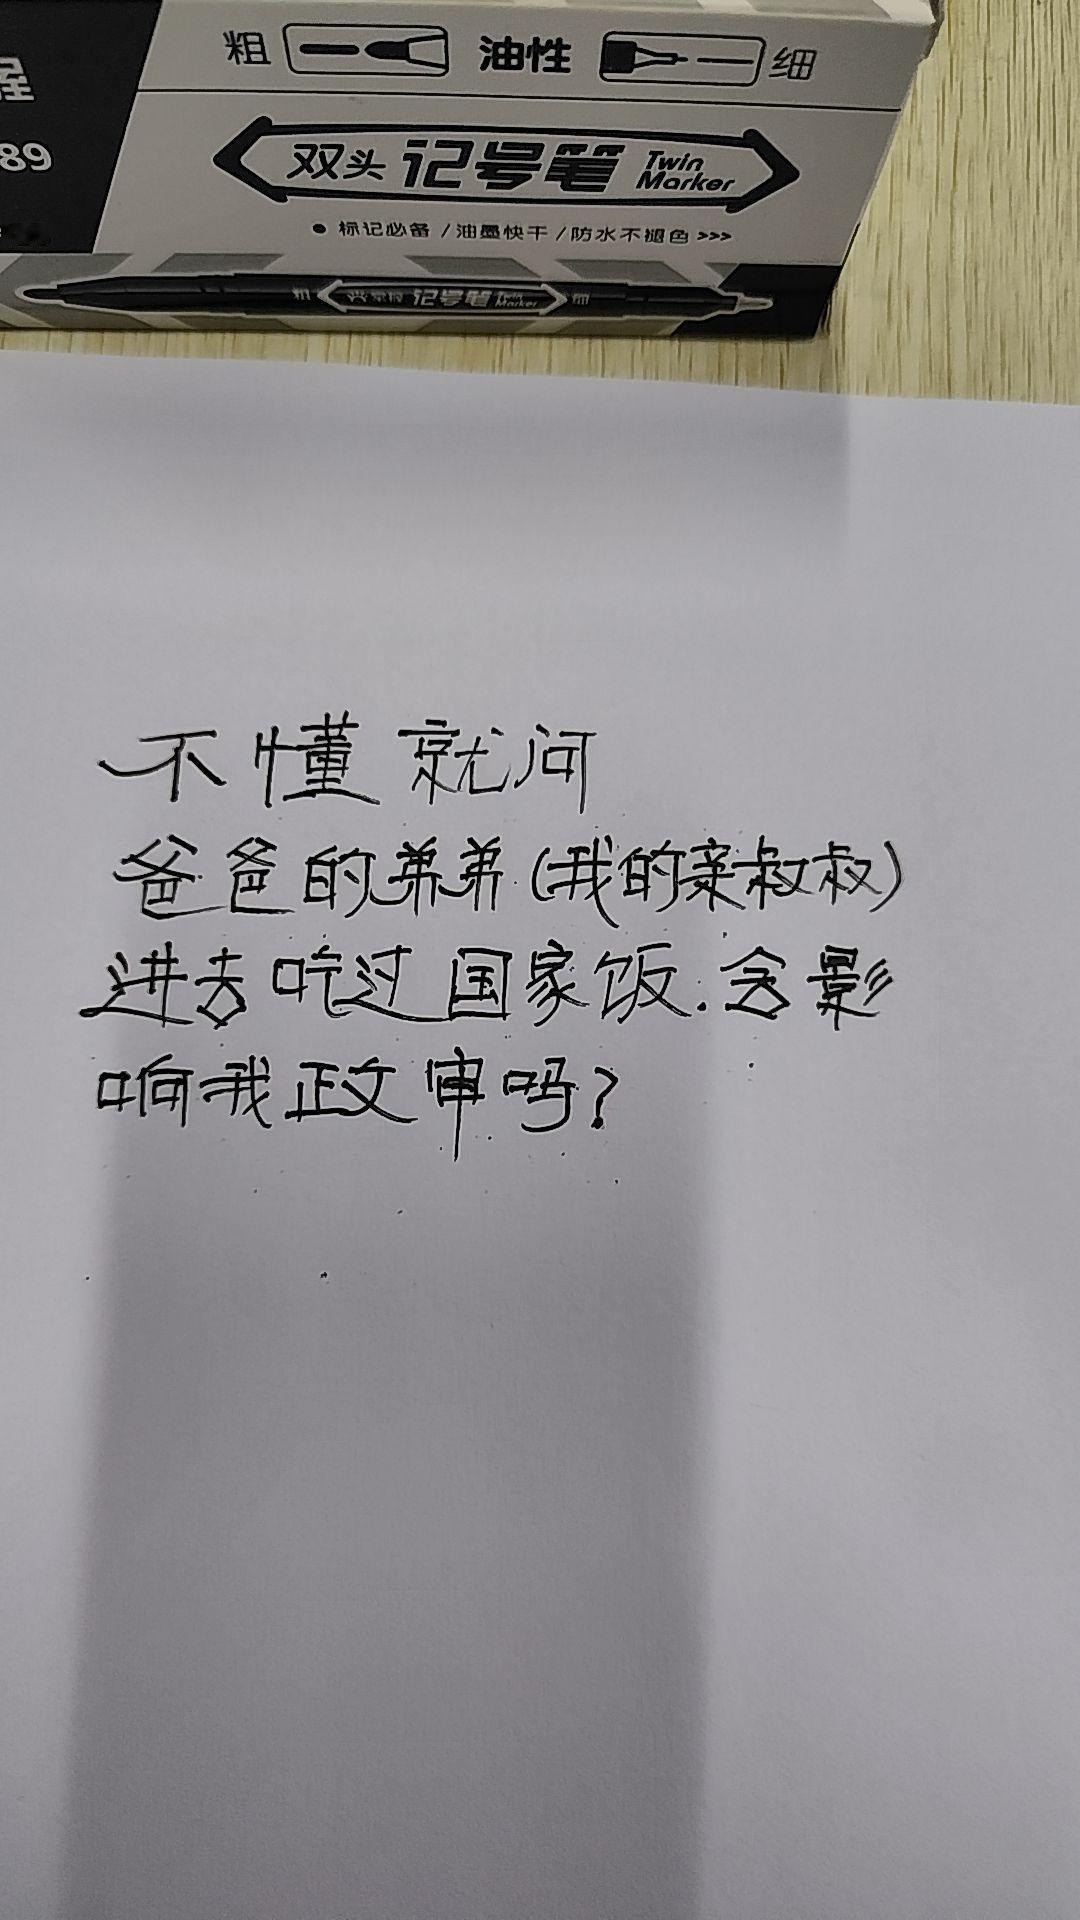 粗 油性 细
89
双头 记号笔 Twin Marker
● 标记必备 / 油墨快干 / 防水不褪色 >>>
粗 双头 记号笔 Twin Marker 细
不懂就问
爸爸的弟弟(我的亲叔叔)
进去吃过国家饭.会影
响我政审吗?